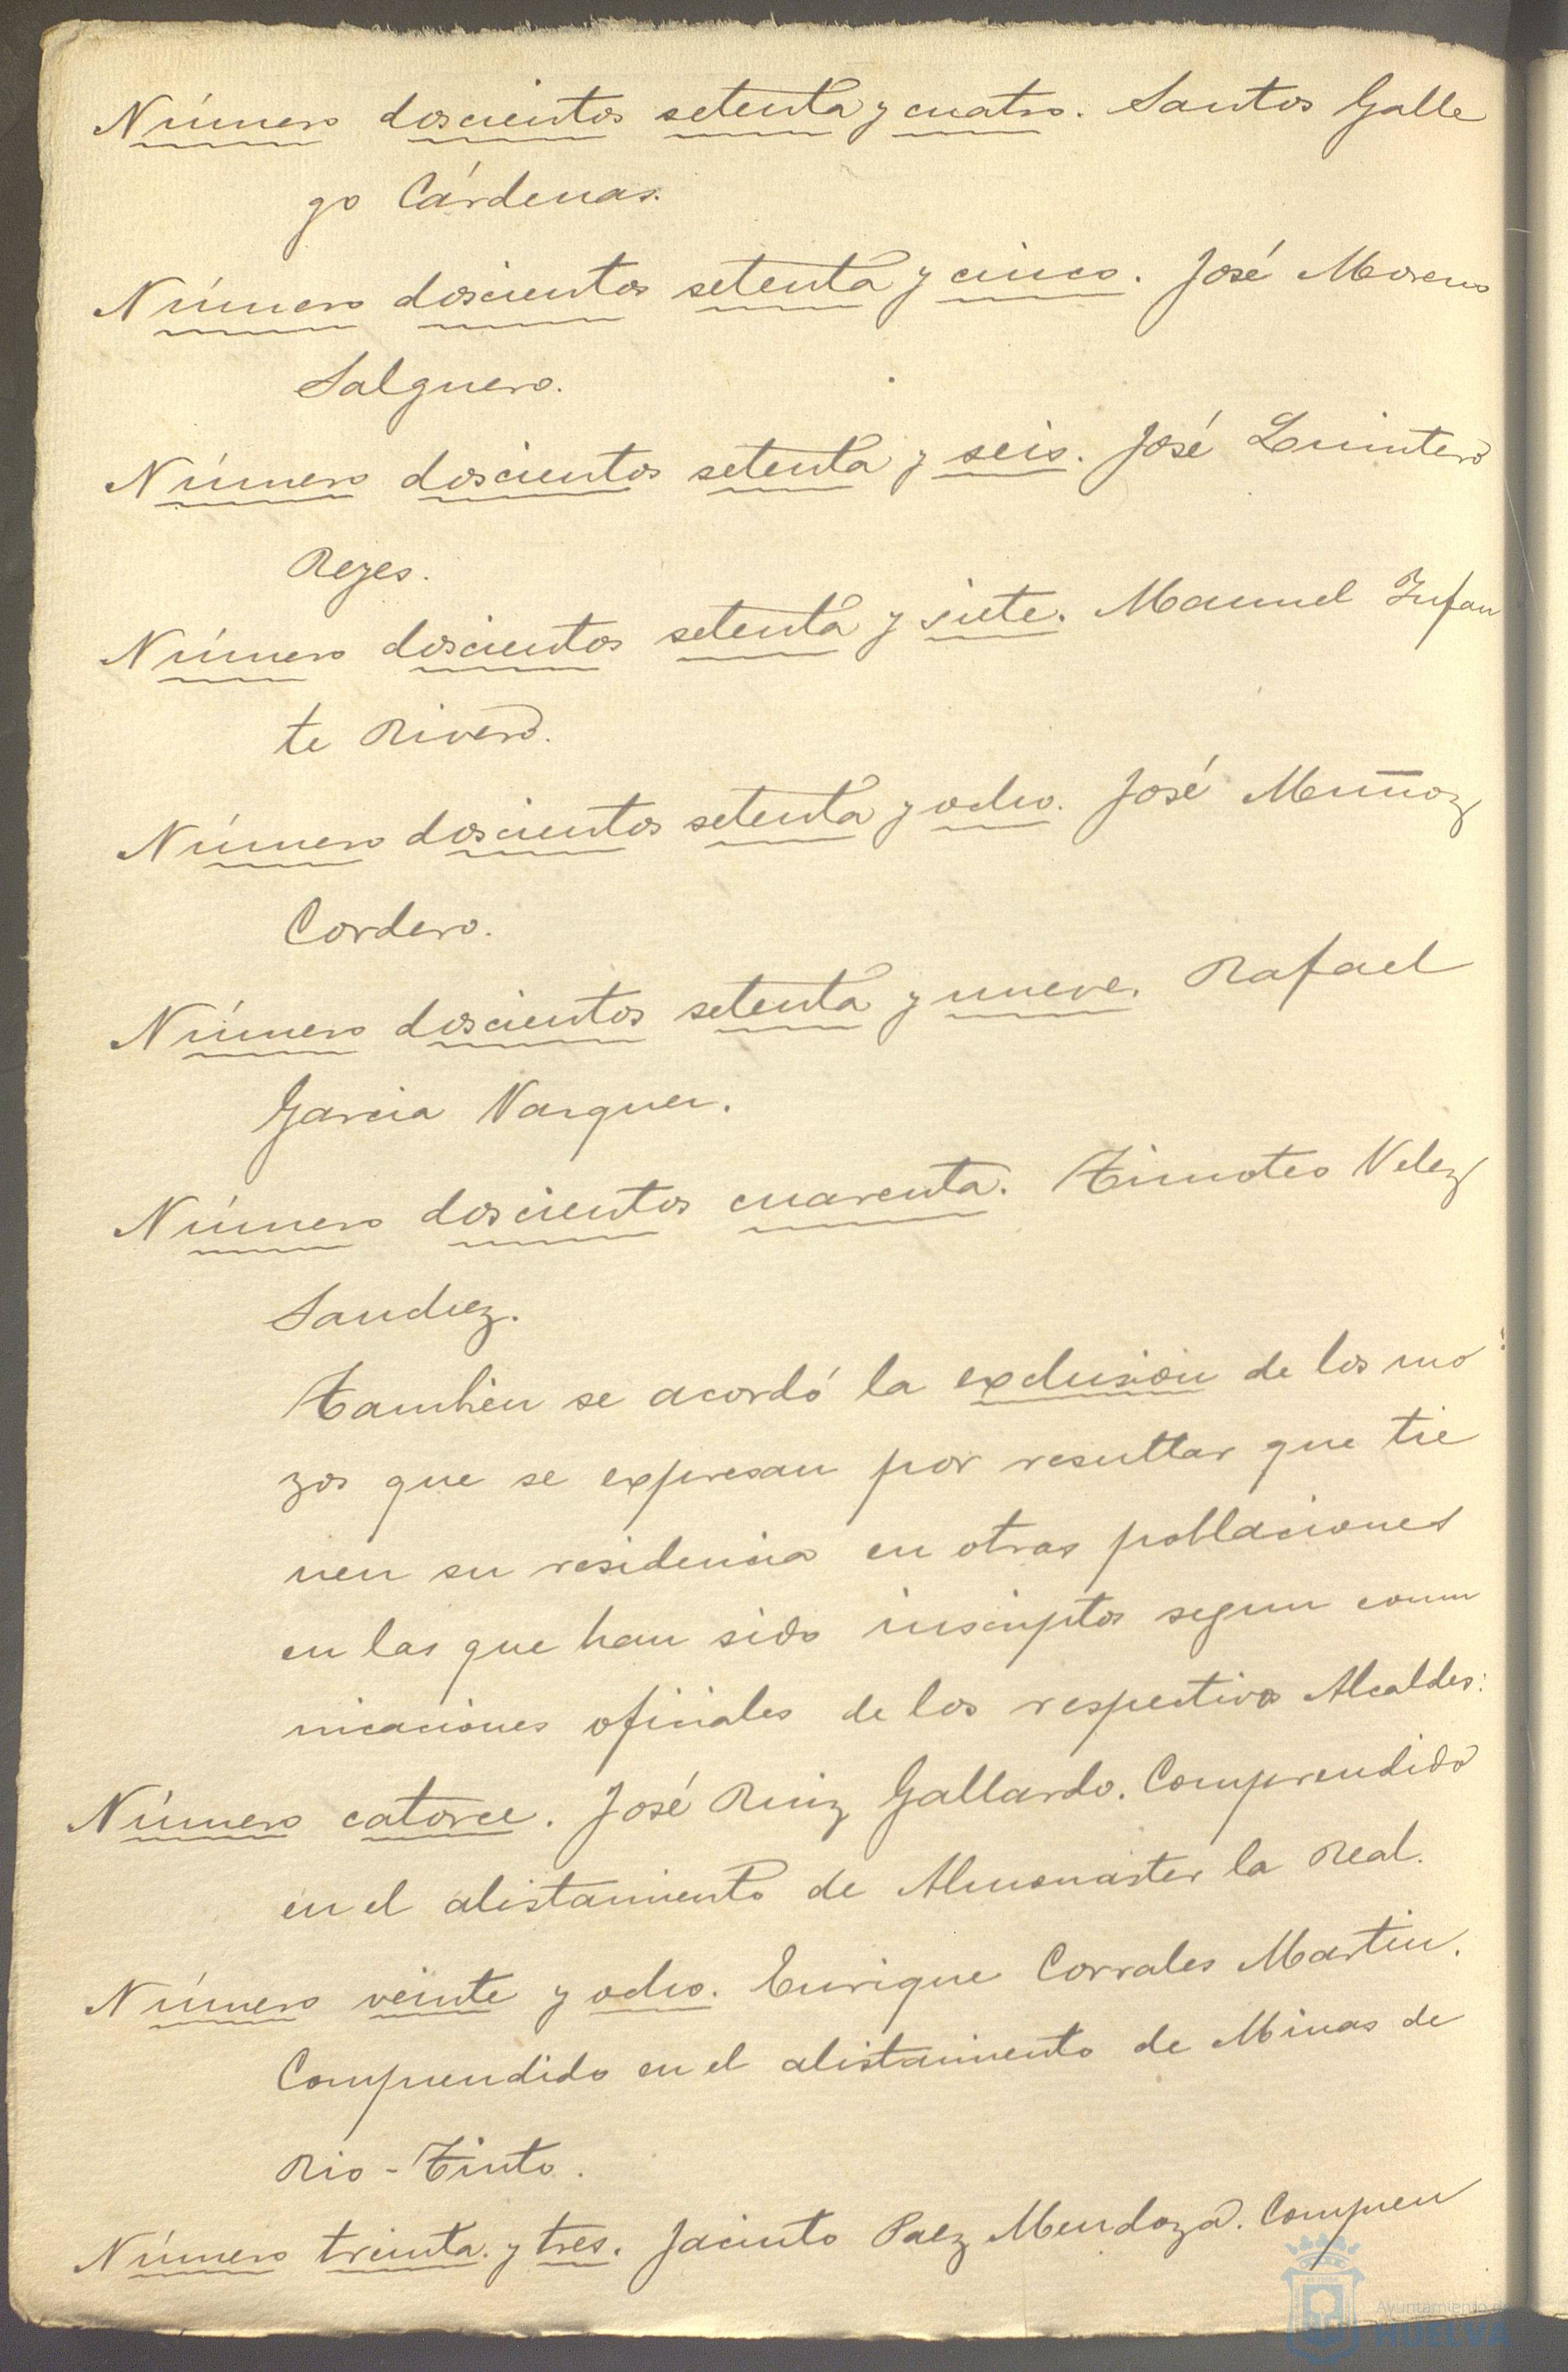 Número doscientos setenta y cuatro. Santos Galle
go Cárdenas.
Número doscientos setenta y cinco. José Moreno
Salguero.
Número doscientos setenta y seis. José Quintero
Reyes.
Número doscientos setenta y siete. Manuel Infan
te Rivero.
Número doscientos setenta y ocho. José Muñoz
Cordero.
Número doscientos setenta y nueve. Rafael
Garcia Vazquez.
Número doscientos cuarenta. Timoteo Velez
Sanchez.
Tambien se acordó la exclusion de los mo
zos que se expresan por resultar que tie
nen su residencia en otras poblaciones
en las que han sido inscriptos segun comu
nicaciones oficiales de los respectivos Alcaldes:
Número catorce. José Ruiz Gallardo. Comprendido
en el alistamiento de Almonaster la Real.
Número veinte y ocho. Enrique Corrales Martin.
Comprendido en el alistamiento de Minas de
Rio-Tinto.
Número treinta y tres. Jacinto Paez Mendoza. Compren
Ayuntamiento de
HUELVA